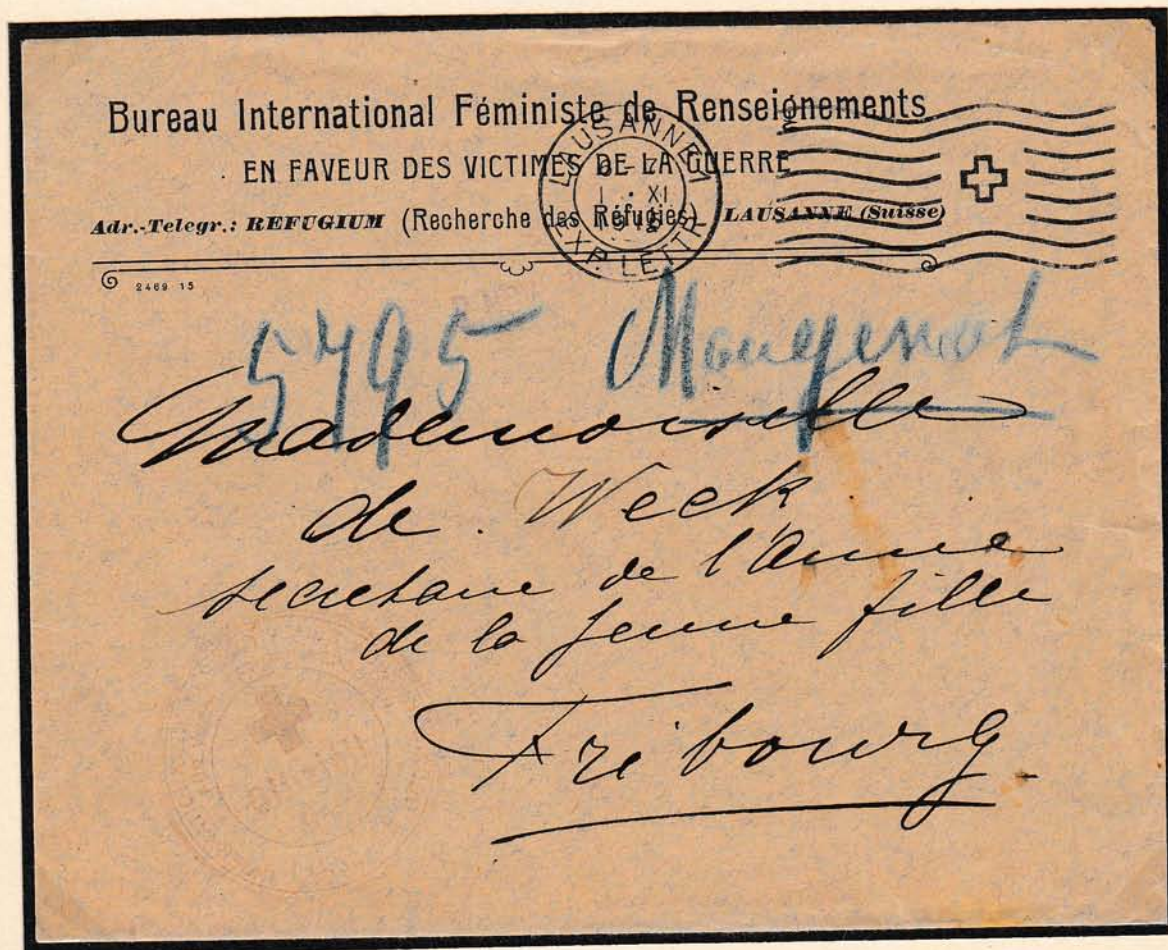 Bureau International Féministe de Renseignements
EN FAVEUR DES VICTIMES DE LA GUERRE
Adr.-Telegr.: REFUGIUM (Recherche des Réfugiés) LAUSANNE (Suisse)
LAUSANNE 1
1 · XI
EXP. LETTR.
2469 15
5795 Mougenot
Mademoiselle
de Weck
secretaire de l'Amie
de la jeune fille
Fribourg